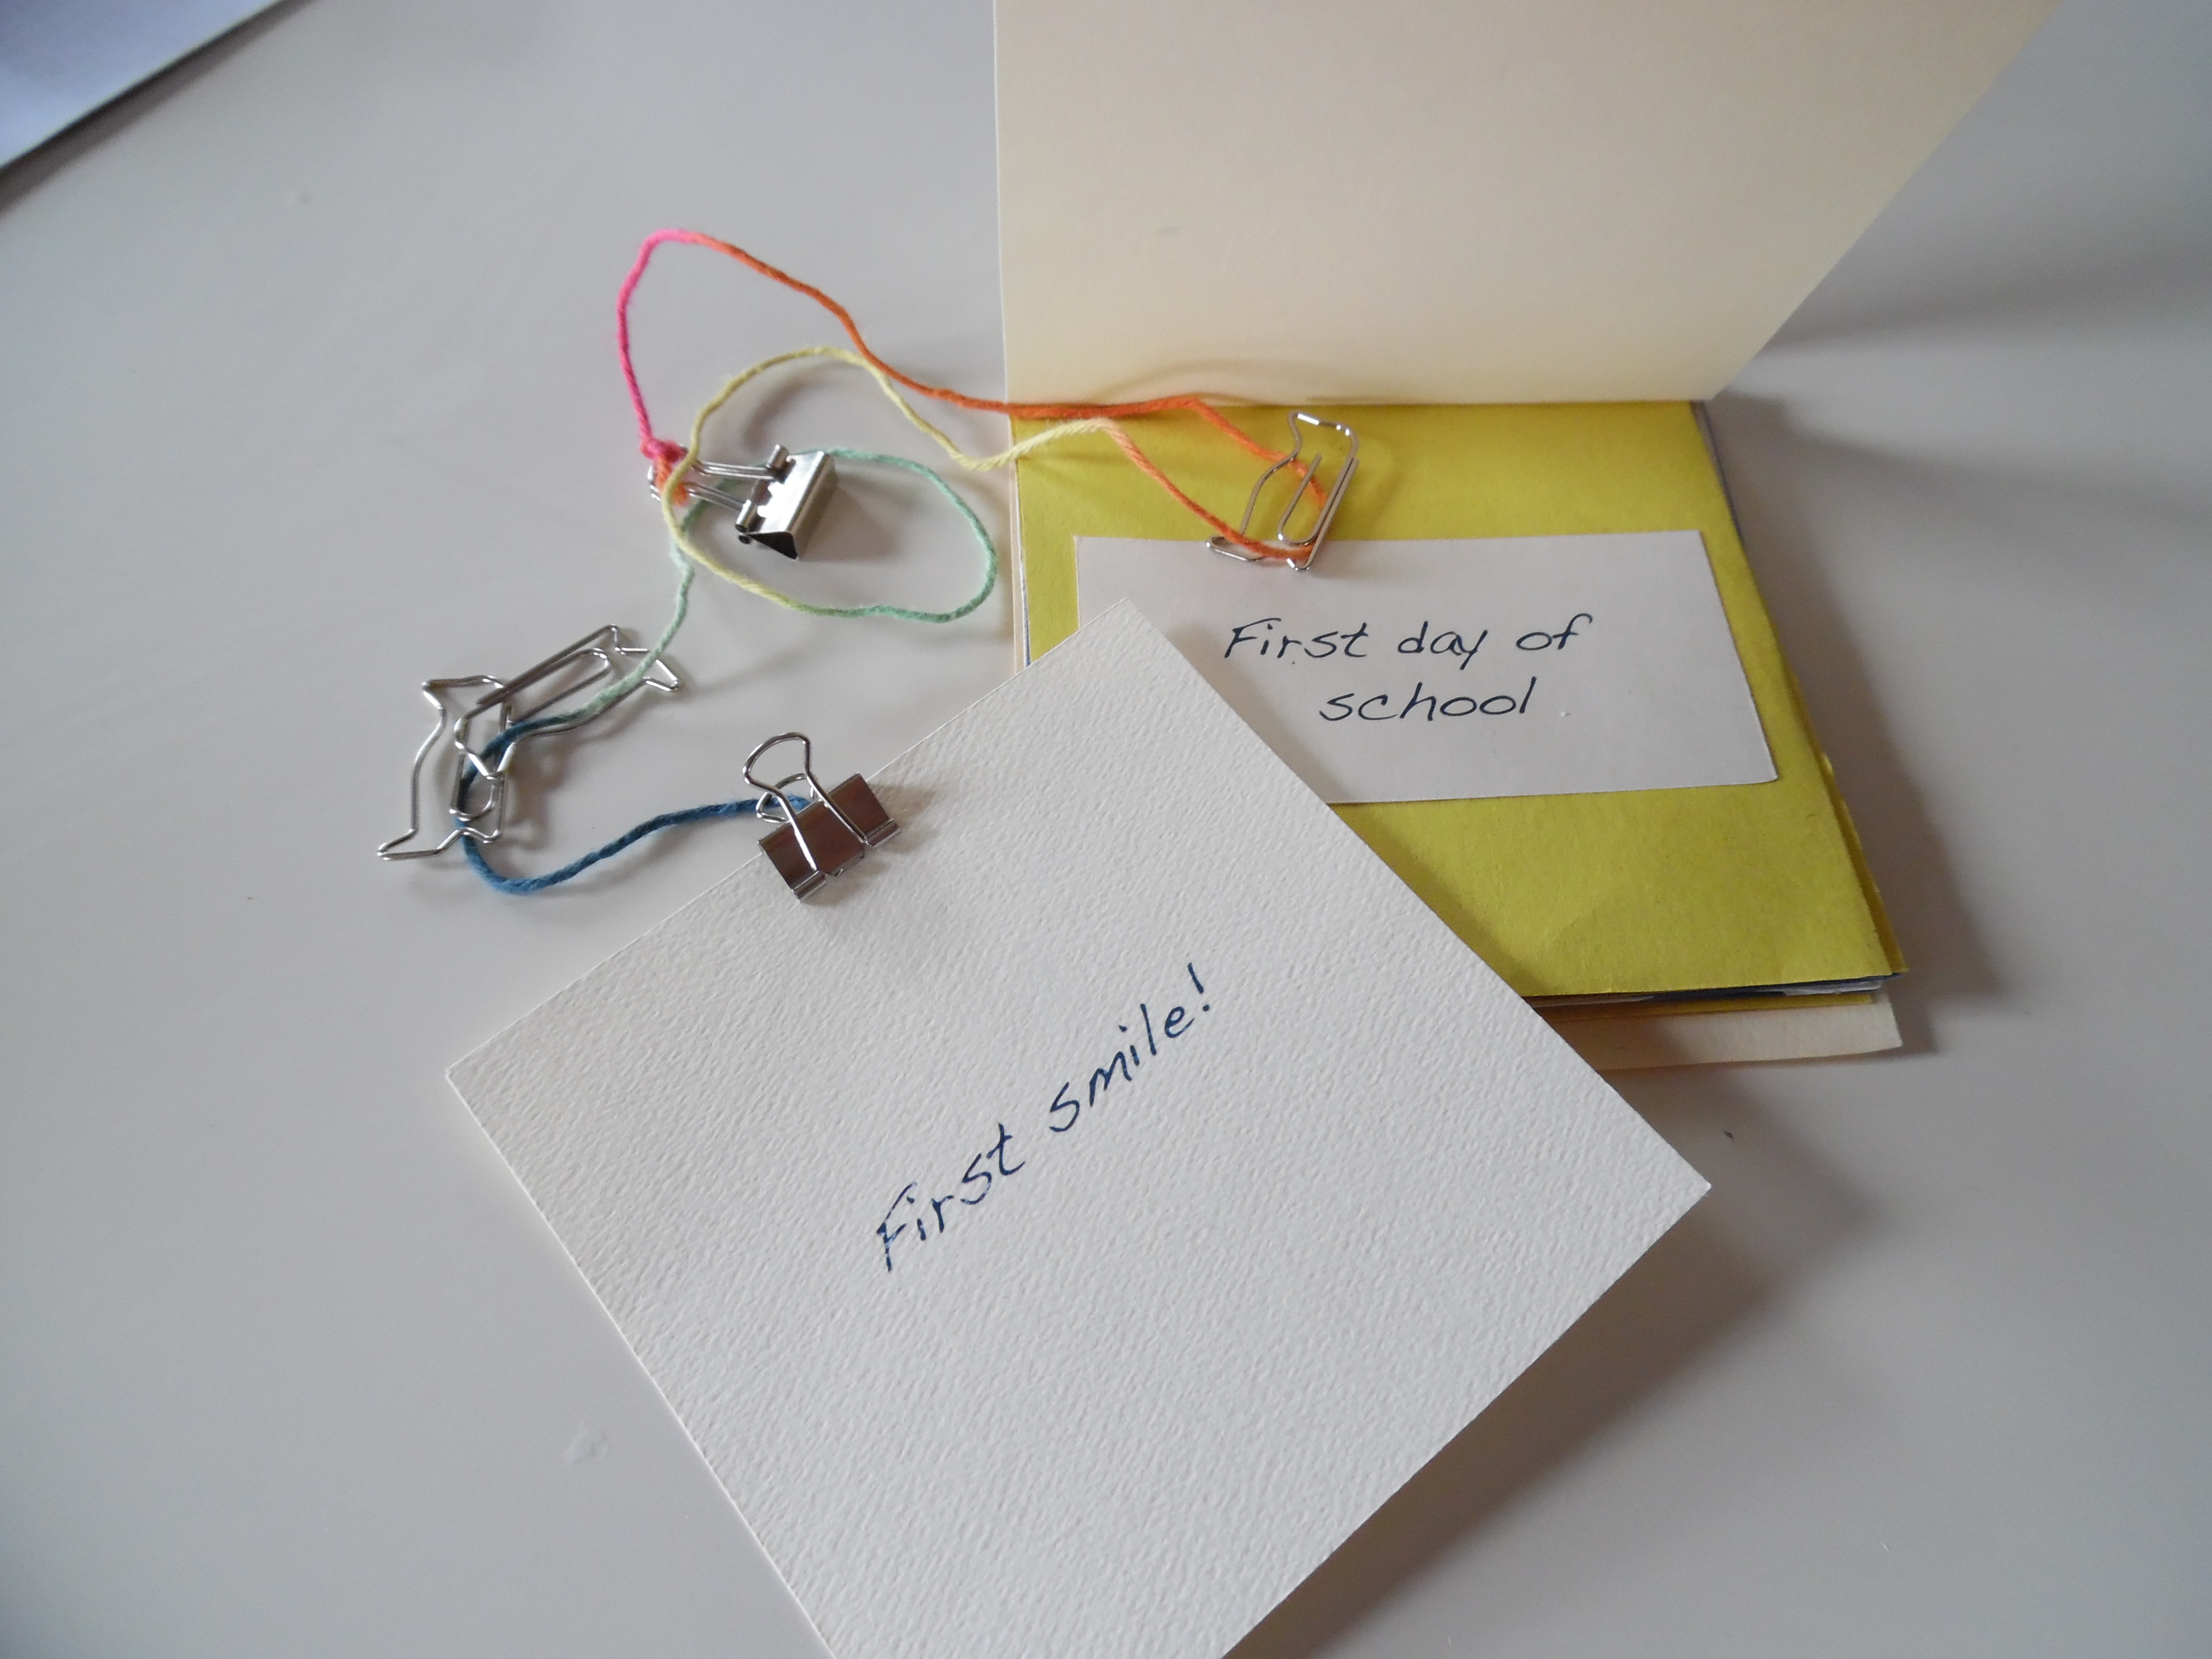 First day of
school
First smile!